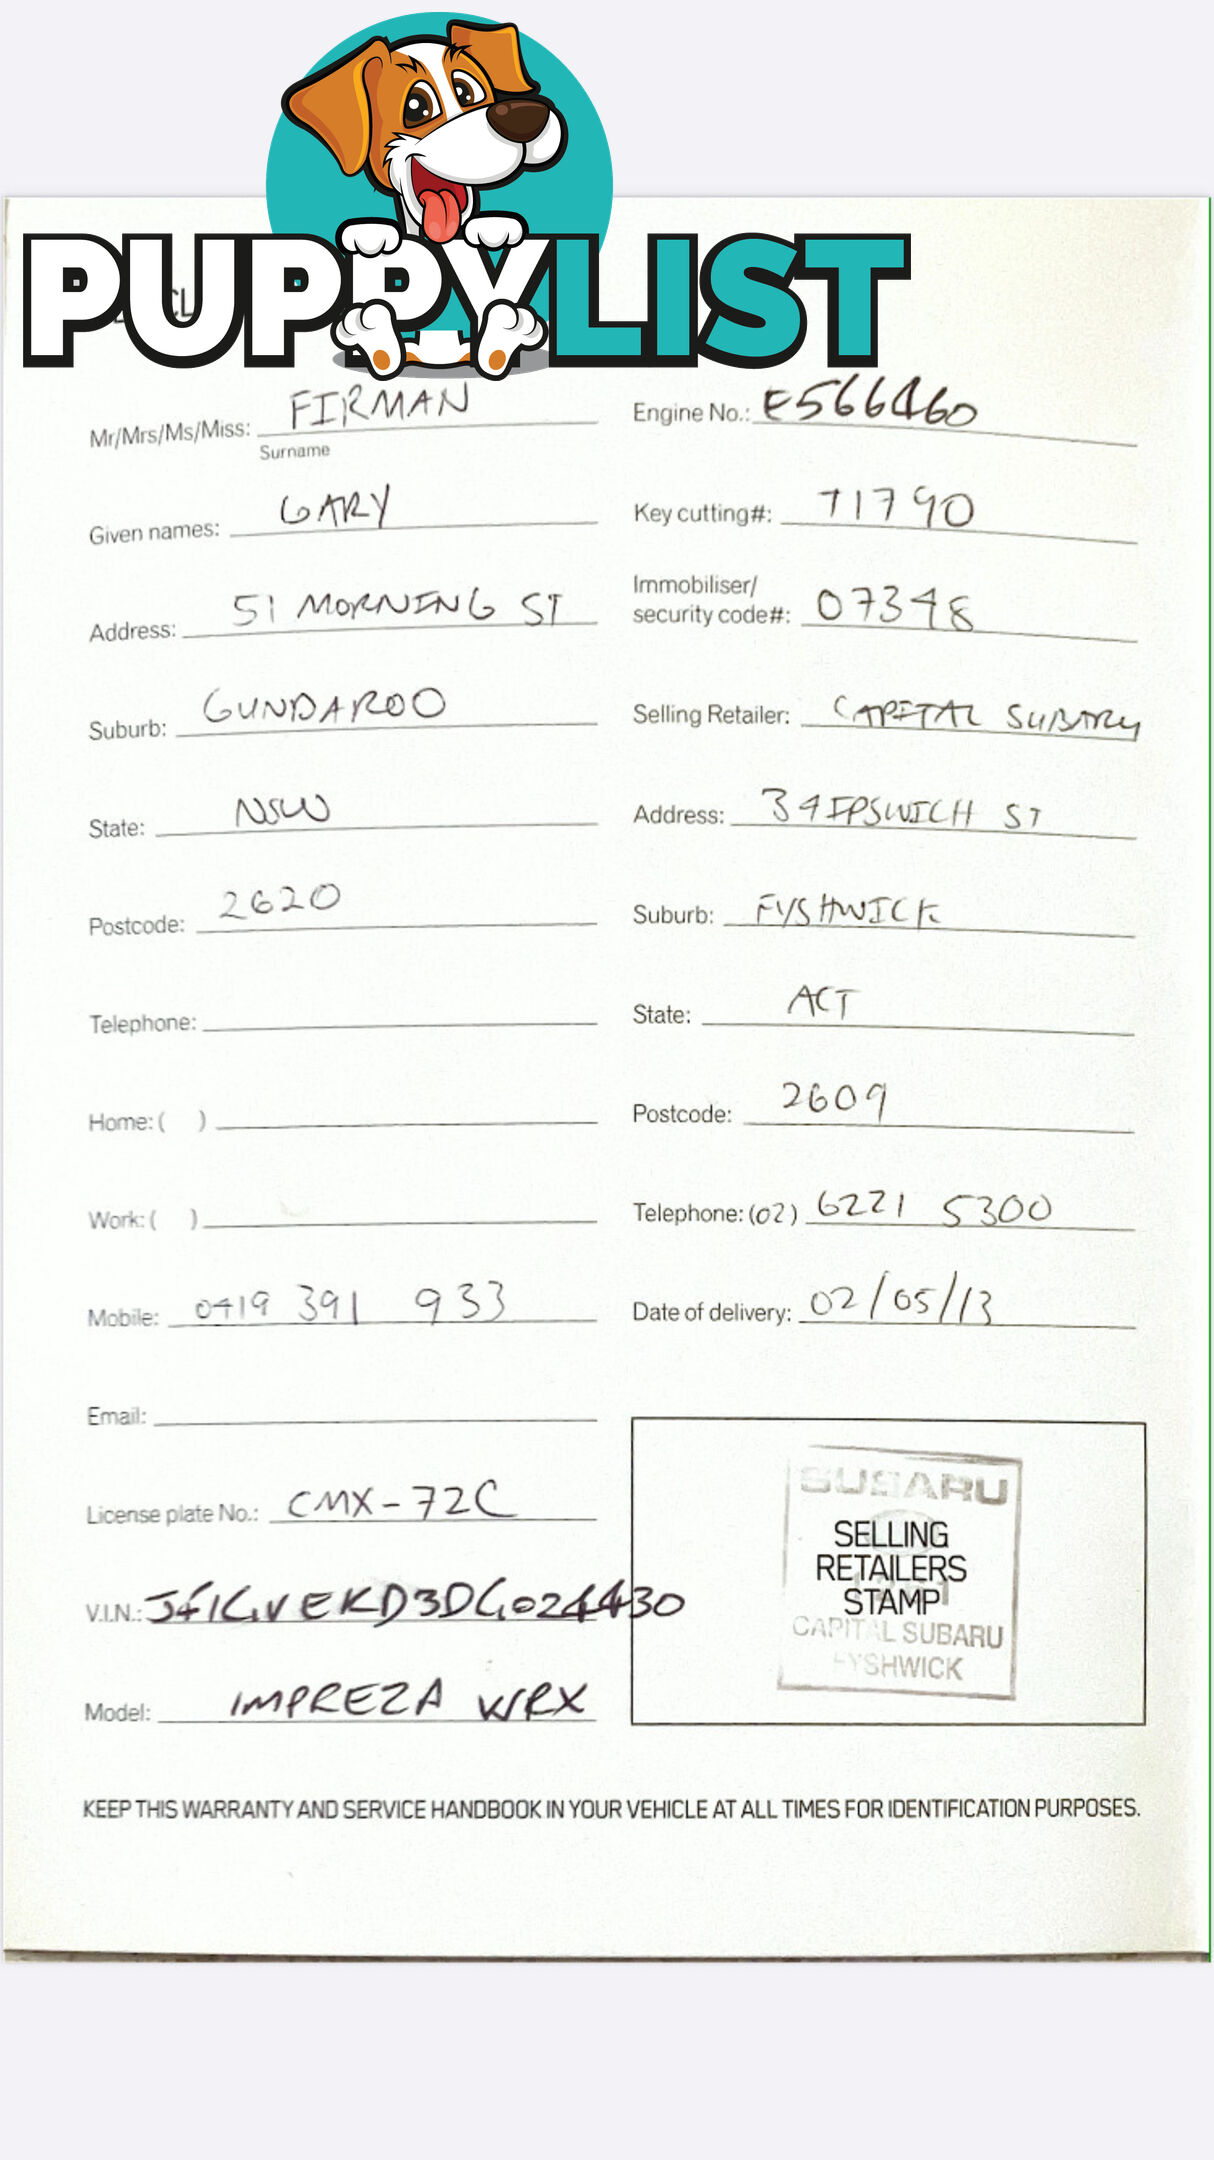 PUPPYLIST
Mr/Mrs/Ms/Miss: FIRMAN
Surname
Given names: GARY
Address: 51 MORNING ST
Suburb: GUNDAROO
State: NSW
Postcode: 2620
Telephone:
Home: ( )
Work: ( )
Mobile: 0419 391 933
Email:
License plate No.: CMX-72C
V.I.N.: JF1GVEKD3DG024430
Model: IMPREZA WRX
Engine No.: E566460
Key cutting#: T1790
Immobiliser/
security code#: 07348
Selling Retailer: CAPITAL SUBARU
Address: 34 IPSWICH ST
Suburb: FYSHWICK
State: ACT
Postcode: 2609
Telephone: (02) 6221 5300
Date of delivery: 02/05/13
SUBARU
SELLING
RETAILERS
STAMP
CAPITAL SUBARU
FYSHWICK
KEEP THIS WARRANTY AND SERVICE HANDBOOK IN YOUR VEHICLE AT ALL TIMES FOR IDENTIFICATION PURPOSES.